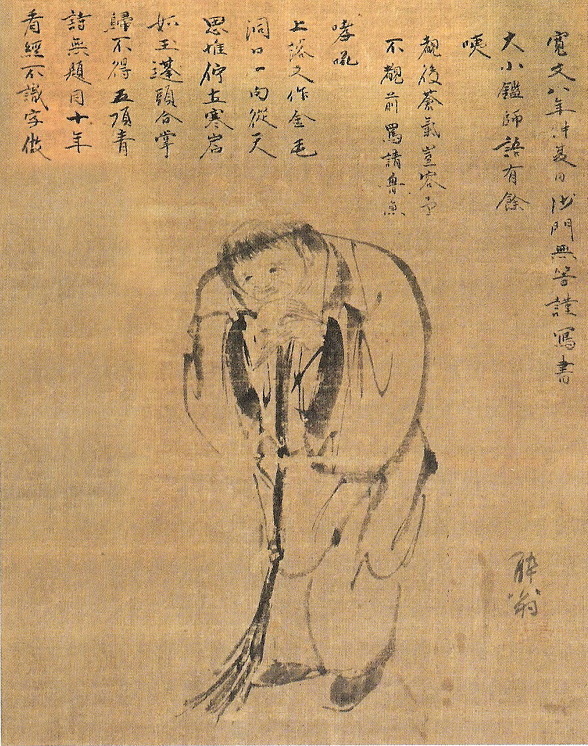 看經不識字做
詩無題目十年
歸不得五頂青
如玉蓬頭合掌
思惟佇立寒岩
洞口一向從天
上文作金毛
哮吼
不覩前罵請魯魚
覩後蒼氣豈容予
咦
大小鑑師語有餘
寛文八年仲夏日沙門無等謹寫書
酔翁